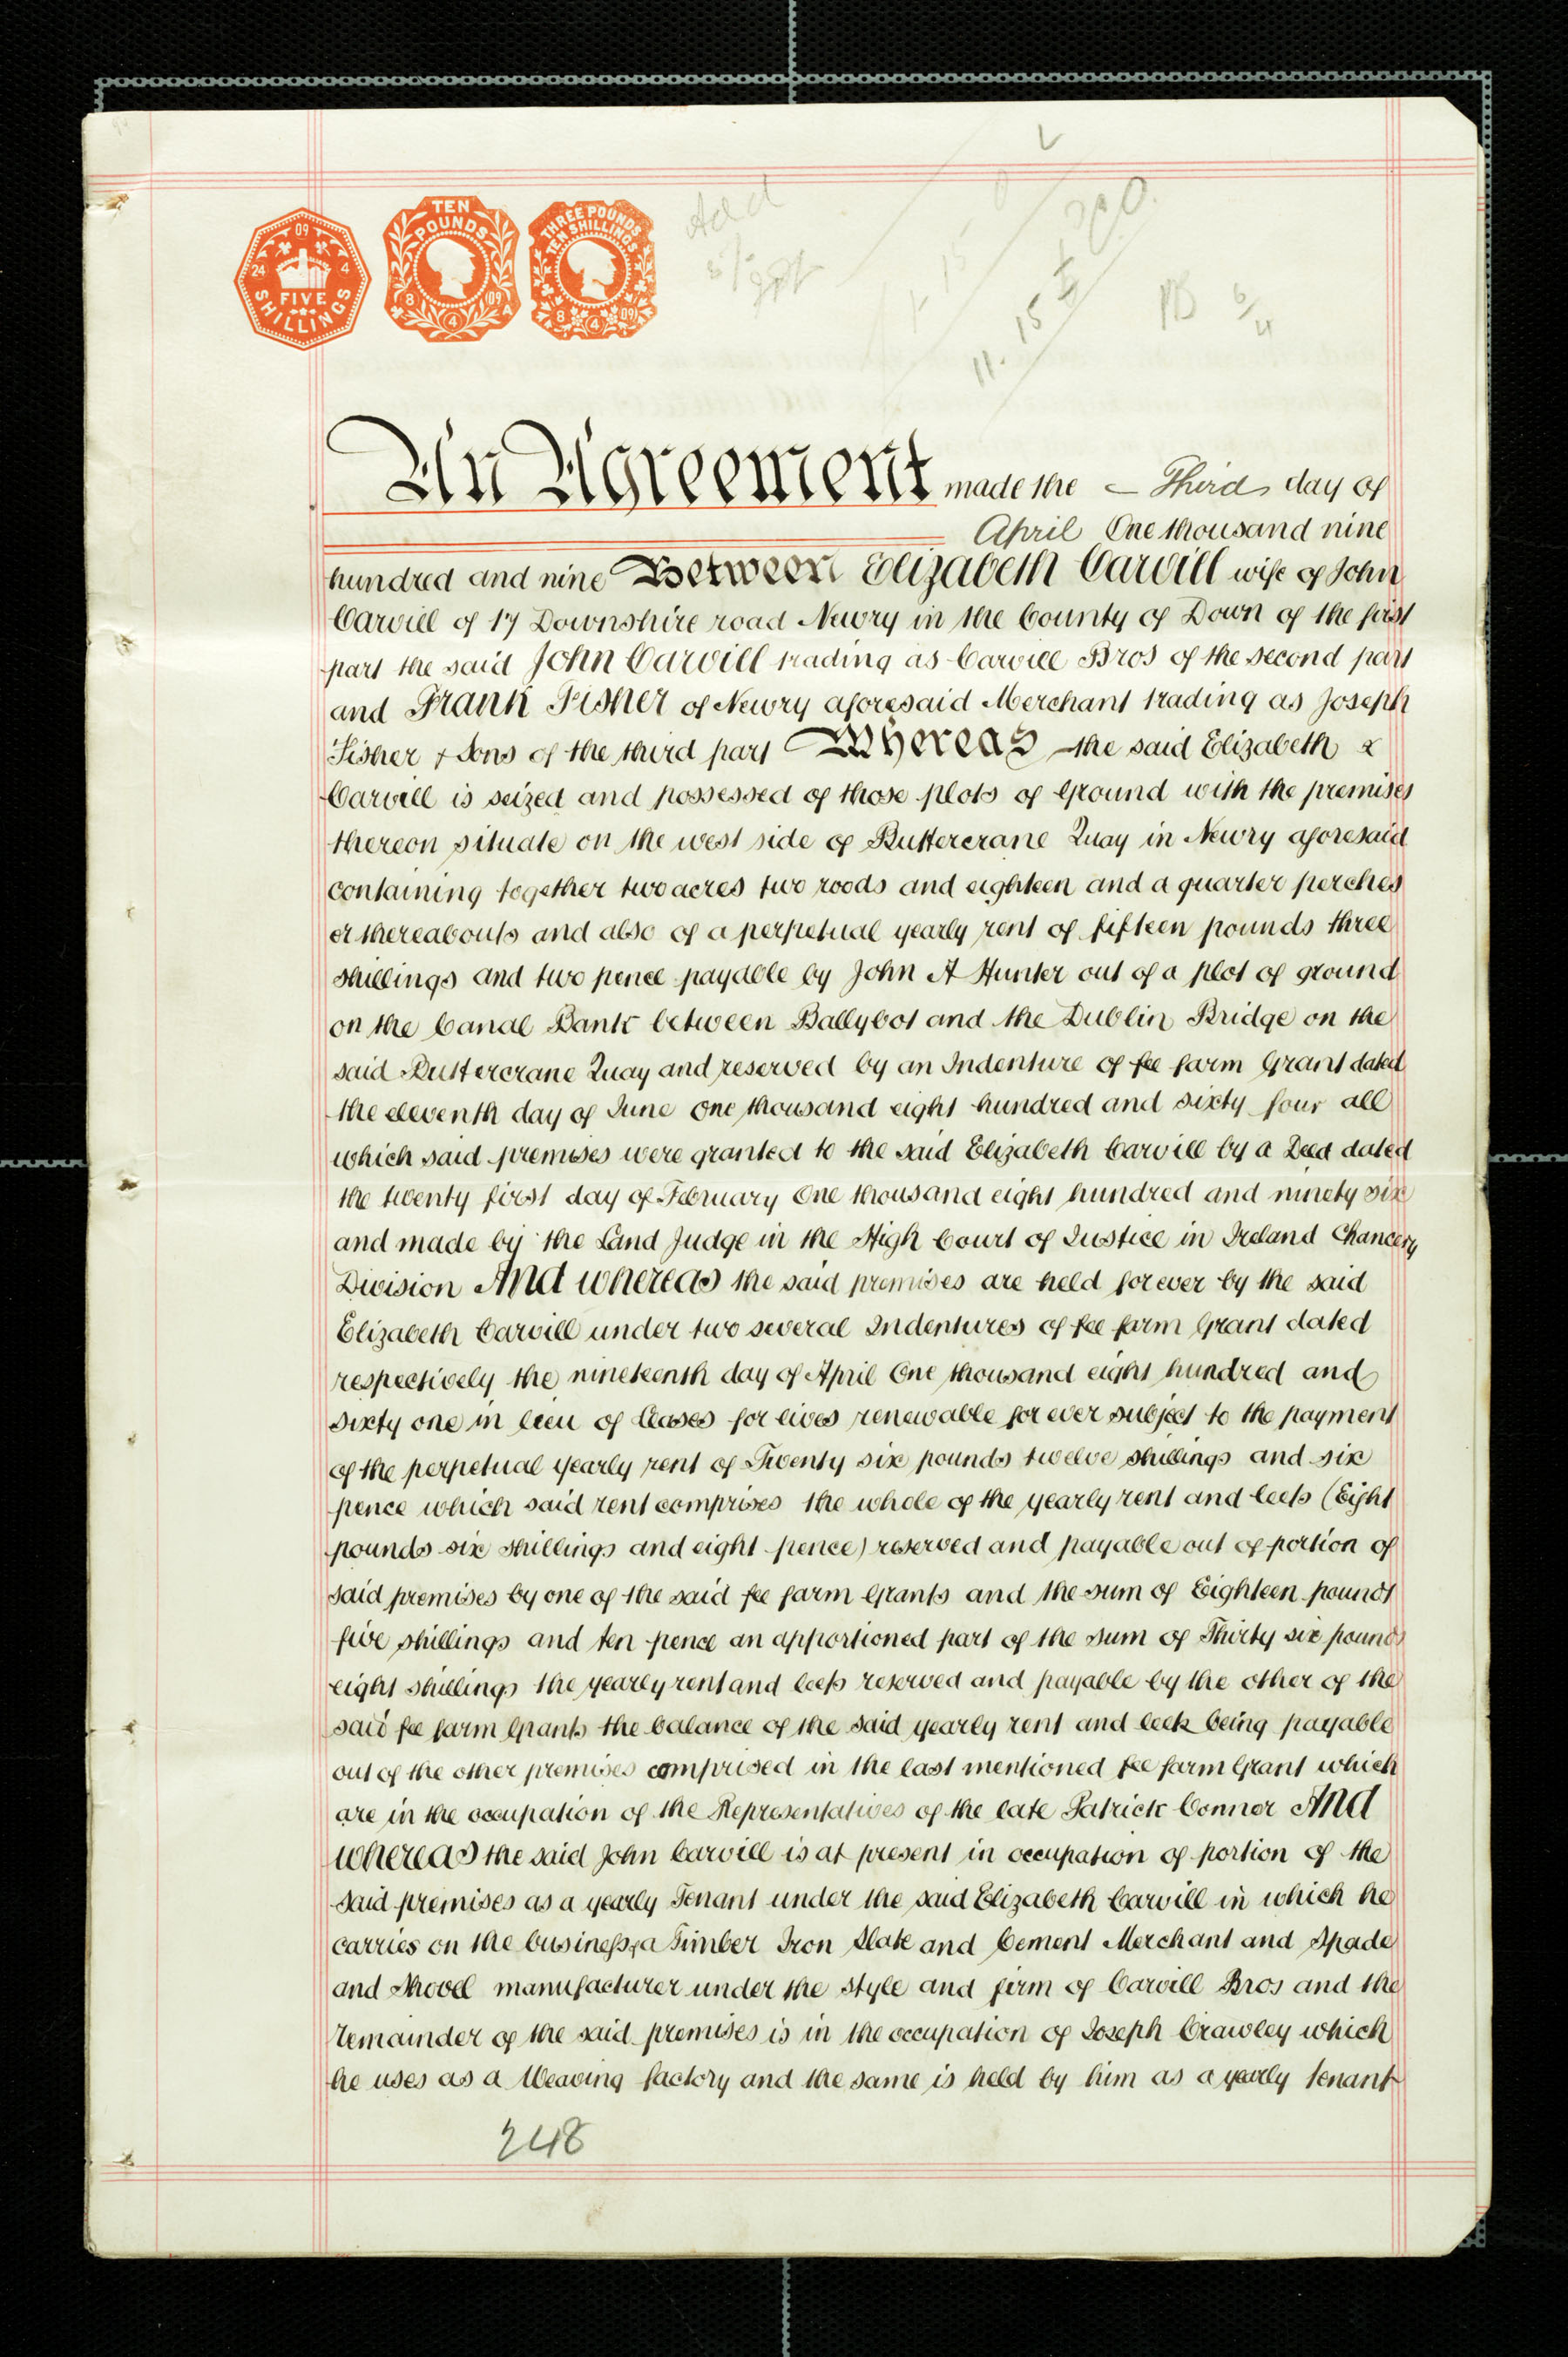 09
24 4
FIVE
SHILLINGS
TEN
POUNDS
8 09
4
A
THREE POUNDS
TEN SHILLINGS
8 4 09
Add
5/-
11. 15
5/4
An Agreement made the Third day of
April One thousand nine
hundred and nine Between Elizabeth Carvill wife of John
Carvill of 17 Downshire road Newry in the County of Down of the first
part the said John Carvill trading as Carvill Bros of the second part
and Frank Fisher of Newry aforesaid Merchant trading as Joseph
Fisher & Sons of the third part Whereas the said Elizabeth
Carvill is seized and possessed of those plots of Ground with the premises
thereon situate on the west side of Buttercrane Quay in Newry aforesaid
containing together two acres two roods and eighteen and a quarter perches
or thereabouts and also of a perpetual yearly rent of fifteen pounds three
shillings and two pence payable by John A Hunter out of a plot of ground
on the Canal Bank between Ballybot and the Dublin Bridge on the
said Buttercrane Quay and reserved by an Indenture of fee farm Grant dated
the eleventh day of June One thousand eight hundred and sixty four all
which said premises were granted to the said Elizabeth Carvill by a Deed dated
the twenty first day of February One thousand eight hundred and ninety six
and made by the Land Judge in the High Court of Justice in Ireland Chancery
Division And whereas the said premises are held for ever by the said
Elizabeth Carvill under two several Indentures of fee farm Grant dated
respectively the nineteenth day of April One thousand eight hundred and
sixty one in lieu of leases for lives renewable for ever subject to the payment
of the perpetual yearly rent of Twenty six pounds twelve shillings and six
pence which said rent comprises the whole of the yearly rent and leets (Eight
pounds six shillings and eight pence) reserved and payable out of portion of
said premises by one of the said fee farm Grants and the sum of Eighteen pounds
five shillings and ten pence an apportioned part of the sum of Thirty six pounds
eight shillings the yearly rent and leets reserved and payable by the other of the
said fee farm Grants the balance of the said yearly rent and leek being payable
out of the other premises comprised in the last mentioned fee farm Grant which
are in the occupation of the Representatives of the late Patrick Connor And
whereas the said John Carvill is at present in occupation of portion of the
said premises as a yearly Tenant under the said Elizabeth Carvill in which he
carries on the business of a Timber Iron Slate and Cement Merchant and Spade
and Shovel manufacturer under the style and firm of Carvill Bros and the
remainder of the said premises is in the occupation of Joseph Crawley which
he uses as a Weaving factory and the same is held by him as a yearly tenant
248